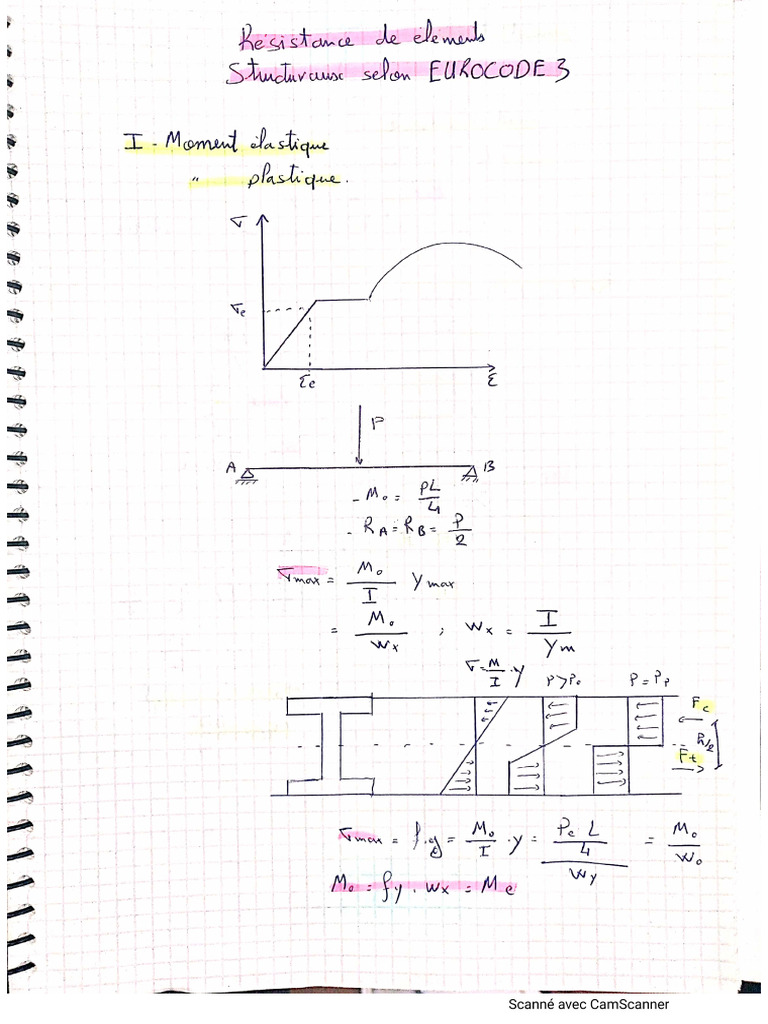 Résistance de élements
Structuraux selon EUROCODE 3
I - Moment élastique
" plastique.
σ
σe
εe
ε
P
A
B
- M₀ = PL/4
- RA = RB = P/2
σmax = M₀/I Ymax
= M₀/Wx ; Wx = I/Ym
σ = M/I · y
P>P₀
P = Pp
Fc
h/2
Ft
σmax = f.y = M₀/I · y = (Pe L/4)/Wy = M₀/W₀
M₀ = fy . Wx = Me
Scanné avec CamScanner